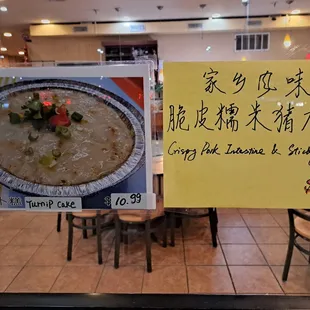 家乡风味
脆皮糯米猪大
Crispy Pork Intestine & Stick
Turnip Cake
10.99